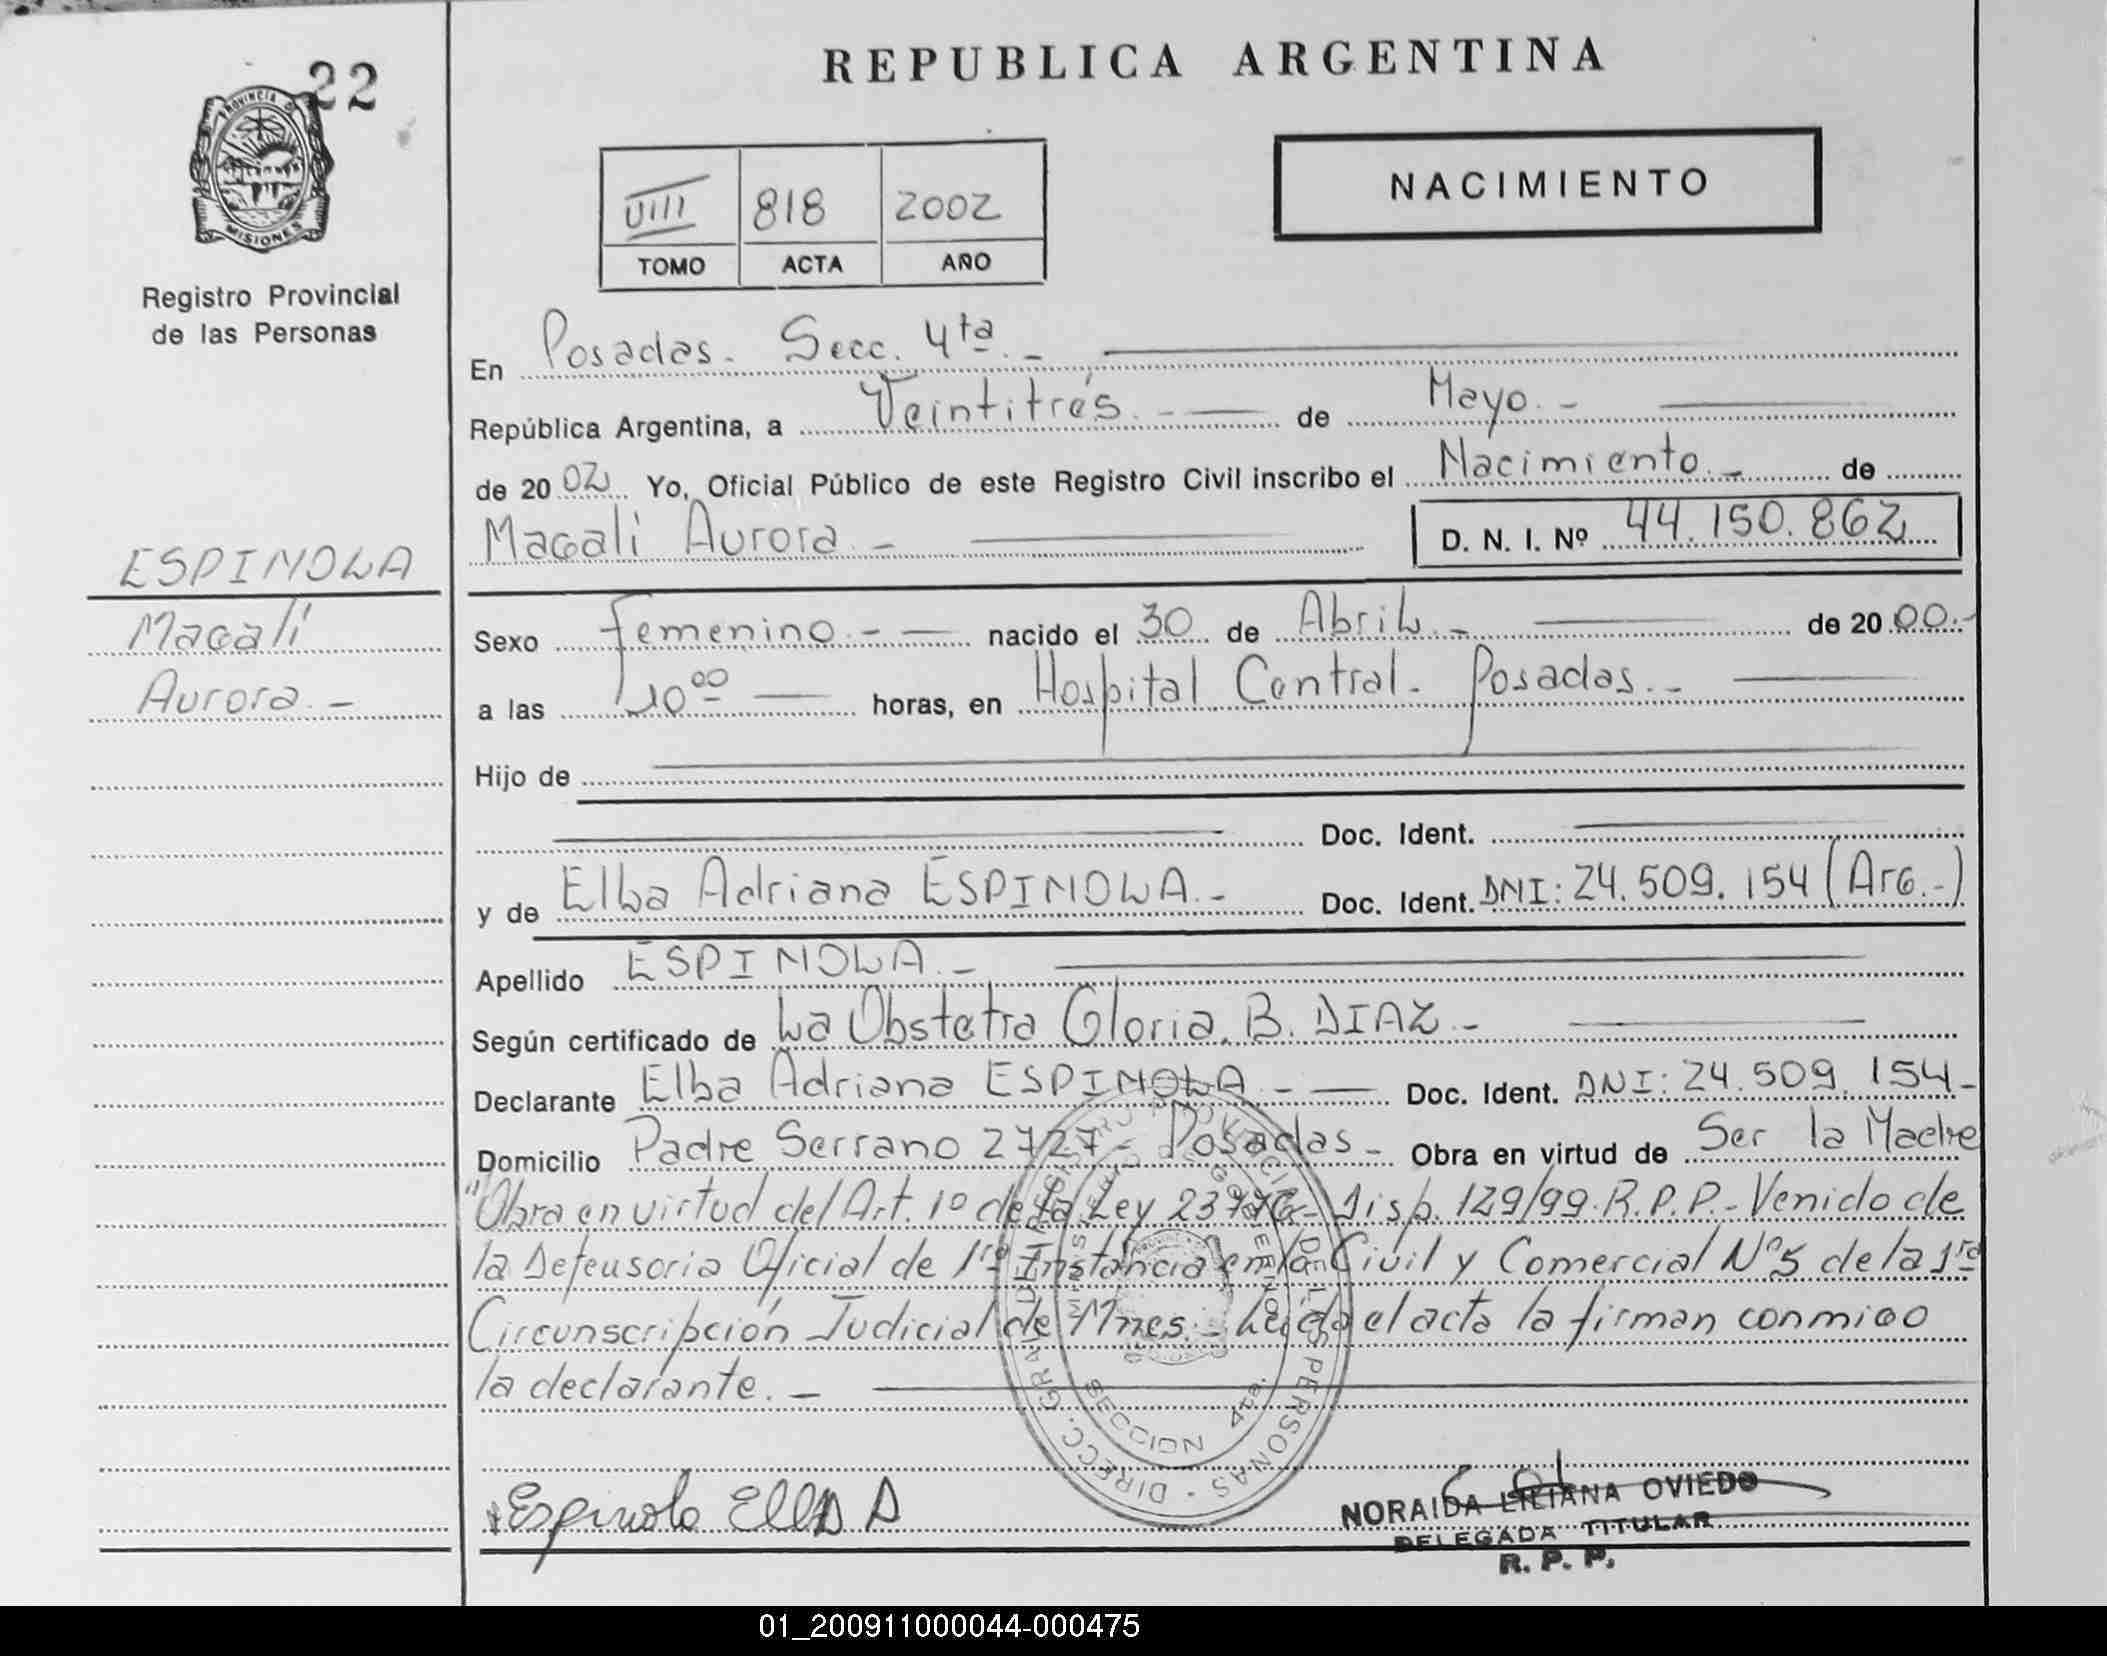 REPUBLICA ARGENTINA
22
PROVINCIA DE
MISIONES
Registro Provincial
de las Personas
VIII 818 2002
TOMO ACTA AÑO
NACIMIENTO
En Posadas. Secc. 4ta. -
República Argentina, a Veintitrés. - de Mayo. -
de 20 02 Yo, Oficial Público de este Registro Civil inscribo el Nacimiento. - de
Magali Aurora - D. N. I. Nº 44.150.862
ESPINOLA
Magali
Aurora. -
Sexo femenino. - nacido el 30 de Abril. - de 20 00. -
a las 10 00 horas, en Hospital Central. Posadas. -
Hijo de
Doc. Ident.
y de Elba Adriana ESPINOLA. - Doc. Ident. DNI: 24.509.154 (Arg.-)
Apellido ESPINOLA. -
Según certificado de La Obstetra Gloria. B. DIAZ. -
Declarante Elba Adriana ESPINOLA. - Doc. Ident. DNI: 24.509.154 -
Domicilio Padre Serrano 2727 - Posadas - Obra en virtud de Ser la Madre
"Obra en virtud del Art. 1º de la Ley 23776 - Disp. 129/99. R.P.P. - Venido de
la Defensoria Oficial de 1ra Instancia en lo Civil y Comercial Nº 5 de la 1ra
Circunscripción Judicial de Mnes. - Leida el acta la firman conmigo
la declarante. -
DIRECC. GRAL. DEL REGISTRO PROVINCIAL DE LAS PERSONAS
SECCION 4ta.
Espinola Elba A
NORAIDA LILIANA OVIEDO
DELEGADA TITULAR
R. P. P.
01_200911000044-000475